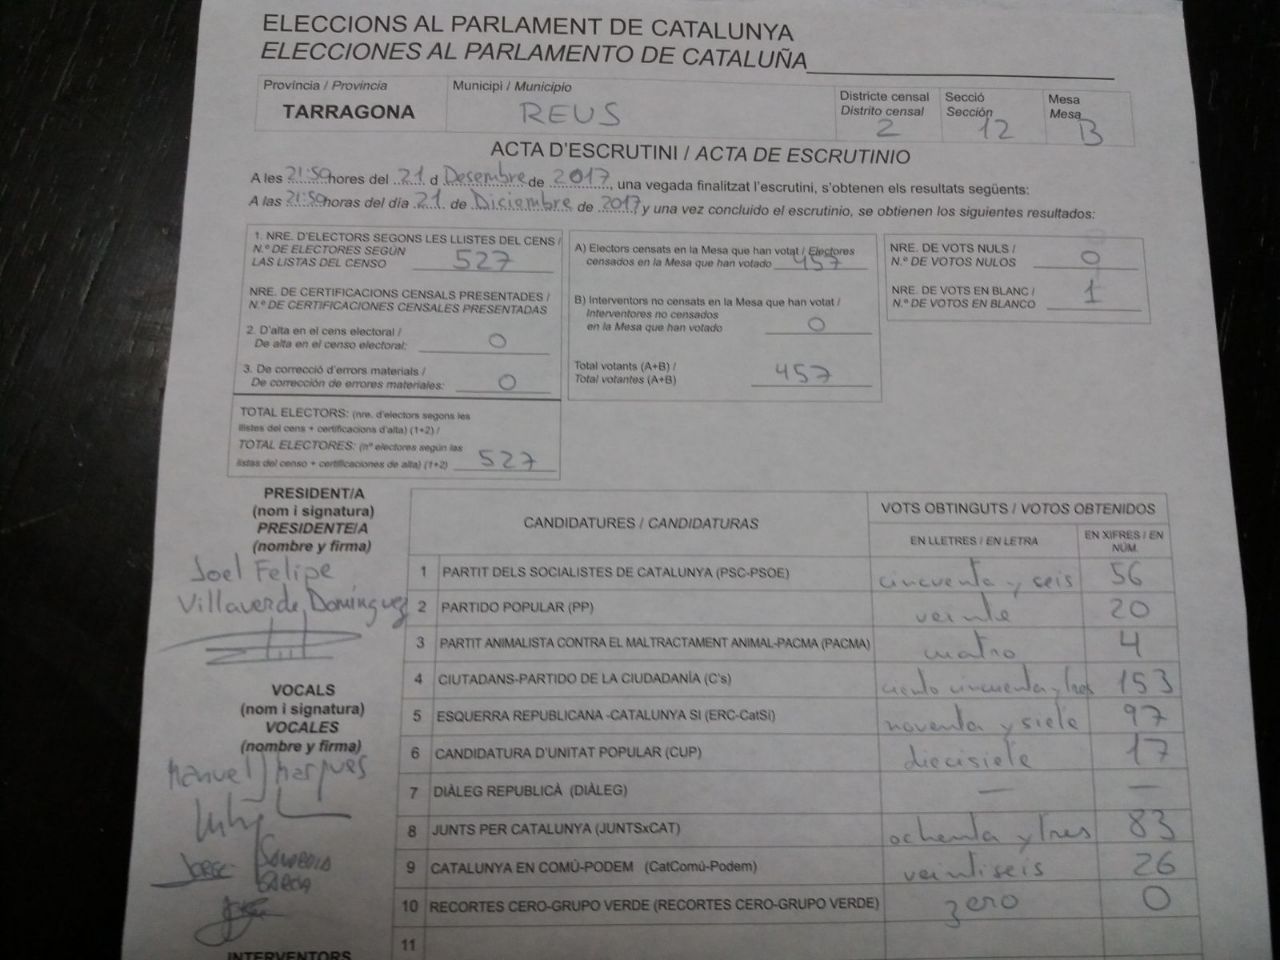 ELECCIONS AL PARLAMENT DE CATALUNYA
ELECCIONES AL PARLAMENTO DE CATALUÑA
Província / Provincia
TARRAGONA
Municipi / Municipio
REUS
Districte censal
Distrito censal
2
Secció
Sección
12
Mesa
Mesa
B
ACTA D'ESCRUTINI / ACTA DE ESCRUTINIO
A les 21:59 hores del 21 d Desembre de 2017, una vegada finalitzat l'escrutini, s'obtenen els resultats següents:
A las 21:59 horas del día 21 de Diciembre de 2017 y una vez concluido el escrutinio, se obtienen los siguientes resultados:
1. NRE. D'ELECTORS SEGONS LES LLISTES DEL CENS /
N.º DE ELECTORES SEGÚN
LAS LISTAS DEL CENSO 527
NRE. DE CERTIFICACIONS CENSALS PRESENTADES /
N.º DE CERTIFICACIONES CENSALES PRESENTADAS
2. D'alta en el cens electoral /
De alta en el censo electoral: 0
3. De correcció d'errors materials /
De corrección de errores materiales: 0
TOTAL ELECTORS: (nre. d'electors segons les
llistes del cens + certificacions d'alta) (1+2) /
TOTAL ELECTORES: (nº electores según las
listas del censo + certificaciones de alta) (1+2) 527
A) Electors censats en la Mesa que han votat / Electores
censados en la Mesa que han votado 457
B) Interventors no censats en la Mesa que han votat /
Interventores no censados
en la Mesa que han votado 0
Total votants (A+B) /
Total votantes (A+B) 457
NRE. DE VOTS NULS /
N.º DE VOTOS NULOS 0
NRE. DE VOTS EN BLANC /
N.º DE VOTOS EN BLANCO 1
PRESIDENT/A
(nom i signatura)
PRESIDENTE/A
(nombre y firma)
Joel Felipe
Villaverde Domínguez
VOCALS
(nom i signatura)
VOCALES
(nombre y firma)
Manuel Marques
JORGE
GARCIA
INTERVENTORS
CANDIDATURES / CANDIDATURAS
VOTS OBTINGUTS / VOTOS OBTENIDOS
EN LLETRES / EN LETRA
EN XIFRES / EN
NÚM.
1 PARTIT DELS SOCIALISTES DE CATALUNYA (PSC-PSOE) cincuenta y seis 56
2 PARTIDO POPULAR (PP) veinte 20
3 PARTIT ANIMALISTA CONTRA EL MALTRACTAMENT ANIMAL-PACMA (PACMA) cuatro 4
4 CIUTADANS-PARTIDO DE LA CIUDADANÍA (C's) ciento cincuenta y tres 153
5 ESQUERRA REPUBLICANA -CATALUNYA SI (ERC-CatSi) noventa y siete 97
6 CANDIDATURA D'UNITAT POPULAR (CUP) diecisiete 17
7 DIÀLEG REPUBLICÀ (DIÀLEG) — —
8 JUNTS PER CATALUNYA (JUNTSxCAT) ochenta y tres 83
9 CATALUNYA EN COMÚ-PODEM (CatComú-Podem) veintiseis 26
10 RECORTES CERO-GRUPO VERDE (RECORTES CERO-GRUPO VERDE) zero 0
11